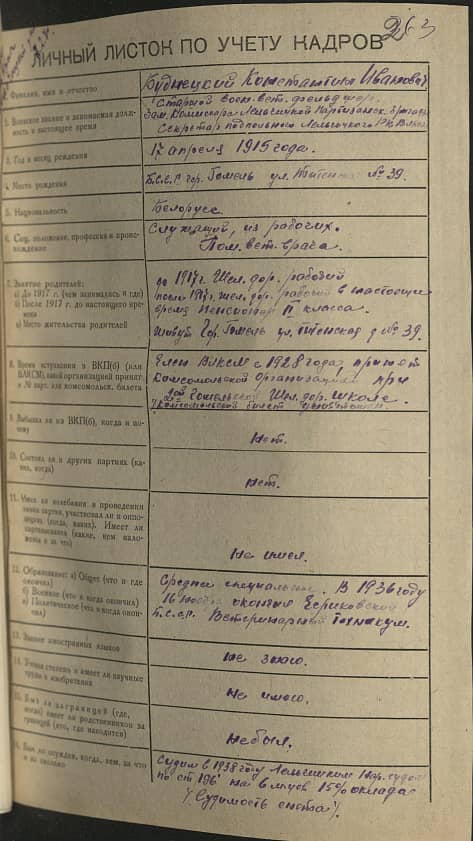 283
ЛИЧНЫЙ ЛИСТОК ПО УЧЕТУ КАДРОВ
1. Фамилия, имя и отчество
Будницкий Константин Иванович
2. Воинское звание и занимаемая должность в настоящее время
Старший воен. вет. фельдшер.
Зам. Комиссара Лельчицкой Партизанск. бригады
Секретарь подпольного Лельчицкого РК ВЛКСМ
3. Год и месяц рождения
17 апреля 1915 года.
4. Место рождения
Б.С.С.Р. гор. Гомель ул. № 39.
5. Национальность
Белорусс
6. Соц. положение, профессия и происхождение
Служащий, из рабочих.
Пом. вет. врача.
7. Занятие родителей:
а) До 1917 г. (чем занимались и где)
б) После 1917 г. до настоящего времени
в) Место жительства родителей
до 1917 г. Жел. дор. рабочий
после 1917 г. жел. дор. рабочий в настоящее
время пенсионер II класса.
Живут Гор. Гомель ул. д. № 39.
8. Время вступления в ВКП(б) (или ВЛКСМ), какой организацией принят, и № парт. или комсомольск. билета
Член ВЛКСМ с 1928 года, принят
Комсомольской Организацией при
Гомельской Жел. дор. школе.
Комсомольский билет
9. Выбывал ли из ВКП(б), когда и почему
Нет.
10. Состоял ли в других партиях (каких, когда)
Нет.
11. Имел ли колебания в проведении линии партии, участвовал ли в оппозициях (когда, каких). Имеет ли партвзыскания (какие, кем наложены и за что)
Не имел.
12. Образование: а) Общее (что и где окончил)
б) Военное (что и когда окончил)
в) Политическое (что и когда окончил)
Среднее специальное. В 1936 году
16 окончил Чериковский
Б.С.С.Р. Ветеринарный Техникум.
13. Знание иностранных языков
Не знаю.
14. Ученая степень и имеет ли научные труды и изобретения
Не имею.
15. Был ли заграницей (где, когда) имеет ли родственников за границей (кто, где находится)
Не был.
16. Был ли осужден, когда, кем, за что и на сколько
Судим в 1938 году Лельчицким Нар. судом
по ст. 196 на 6 м-цев 15% оклада
(Судимость снята).